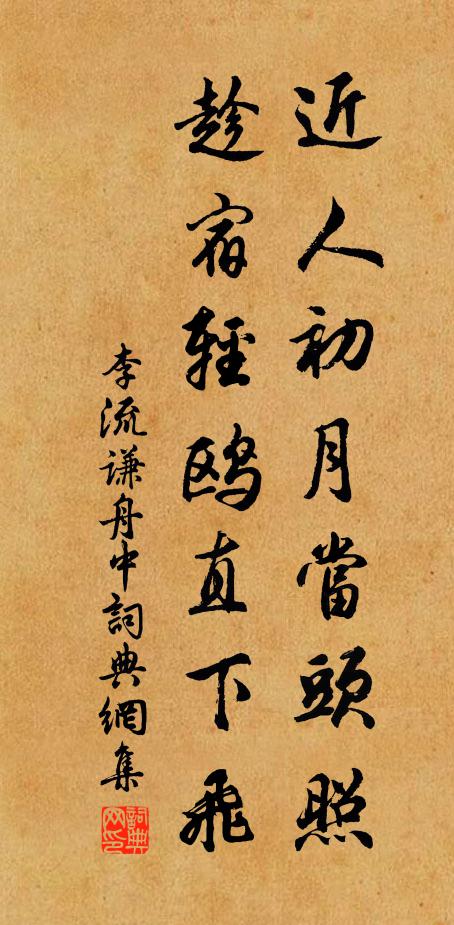 近人初月當頭照
趁宿輕鷗直下飛
李流謙舟中詞典網集
詞典网印